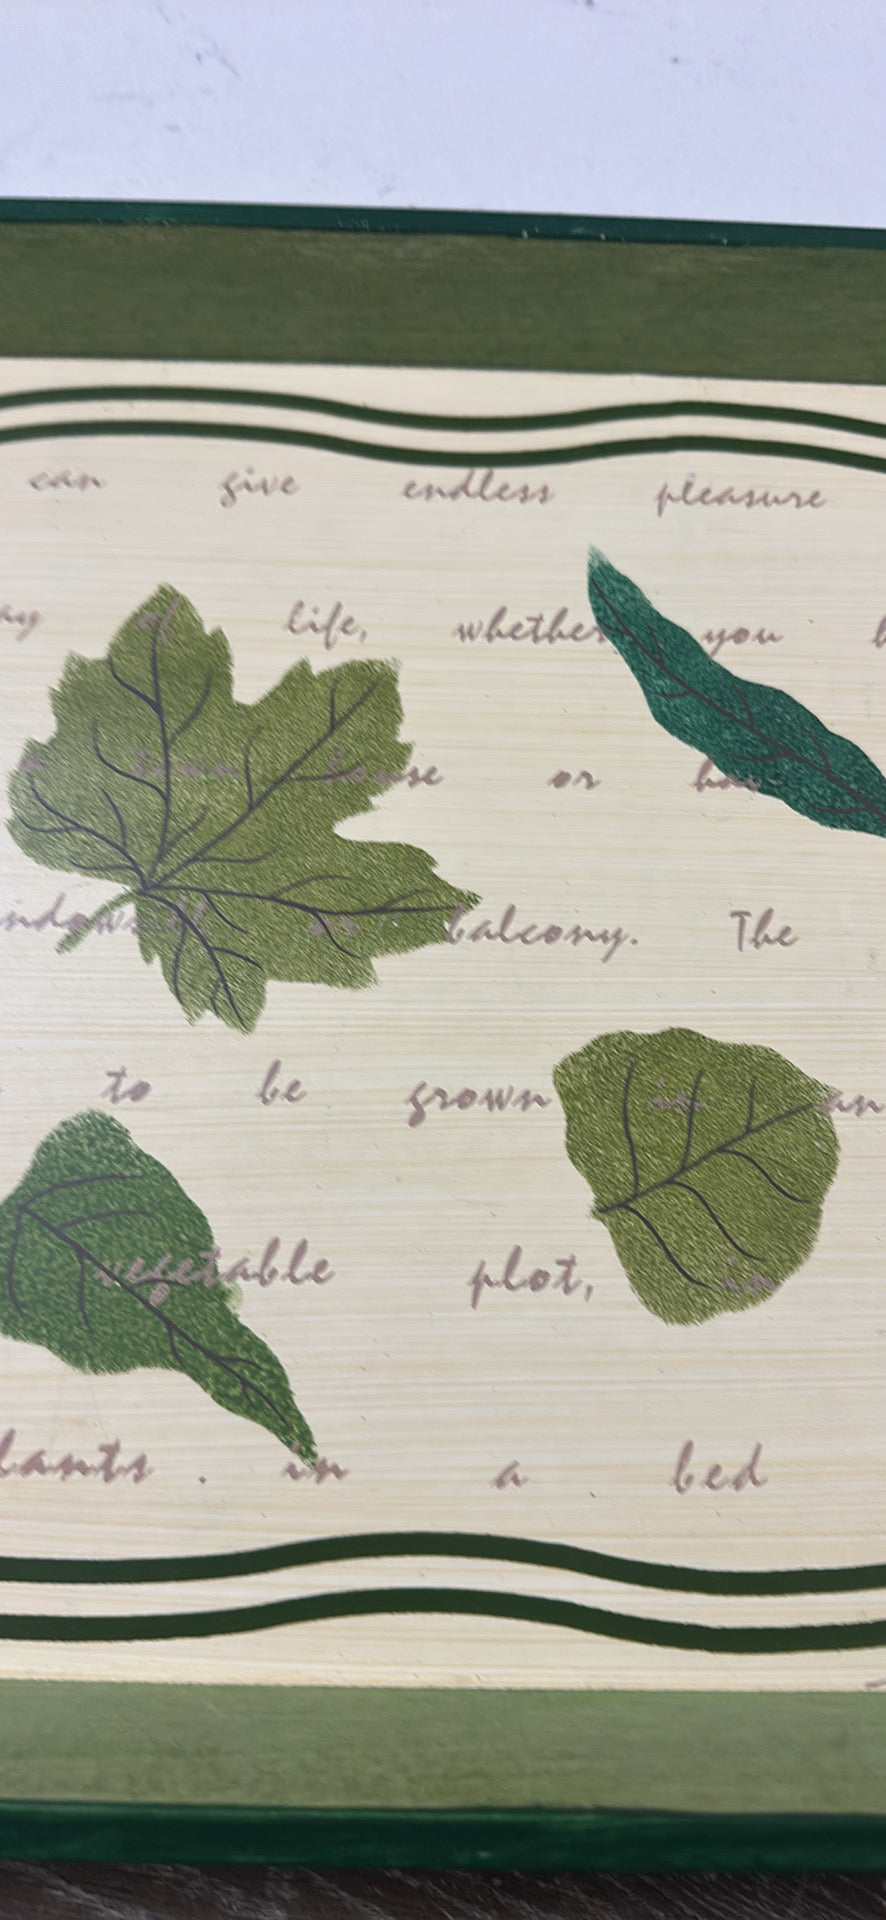 can give endless pleasure
ay of life, whether you b
a town house or have
ndowsill or balcony. The
to be grown in an
vegetable plot, in
lants. in a bed